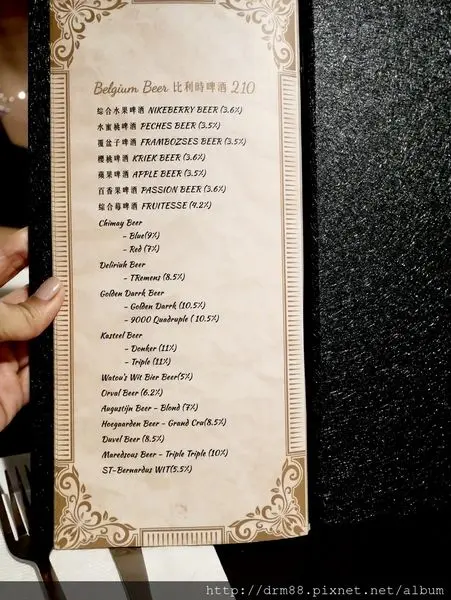 Belgium Beer 比利時啤酒 210
綜合水果啤酒 NIKEBERRY BEER (3.6%)
水蜜桃啤酒 PECHES BEER (3.5%)
覆盆子啤酒 FRAMBOZSES BEER (3.5%)
櫻桃啤酒 KRIEK BEER (3.6%)
蘋果啤酒 APPLE BEER (3.5%)
百香果啤酒 PASSION BEER (3.6%)
綜合莓啤酒 FRUITESSE (4.2%)
Chimay Beer
- Blue(9%)
- Red (7%)
Deliriuh Beer
- TRemens (8.5%)
Golden Darrk Beer
- Golden Darrk (10.5%)
- 9000 Quadruple ( 10.5%)
Kasteel Beer
- Donker (11%)
- Triple (11%)
Watou's Wit Bier Beer(5%)
Orval Beer (6.2%)
Augustijn Beer - Blond (7%)
Hoegaarden Beer - Grand Cru(8.5%)
Duvel Beer (8.5%)
Maredsous Beer - Triple Triple (10%)
ST-Bernardus WIT(5.5%)
http://drm88.pixnet.net/album